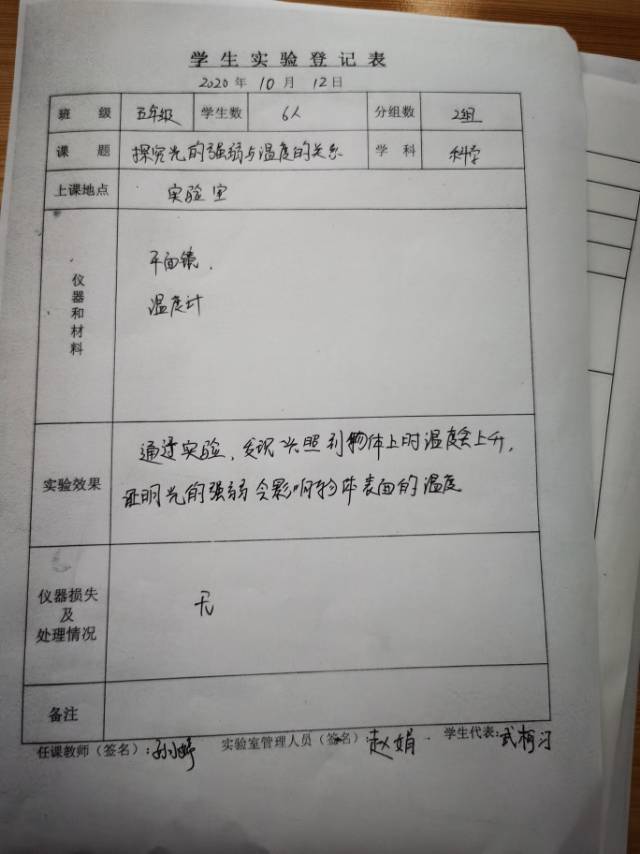 学生实验登记表
2020 年 10 月 12 日
班级 五年级 学生数 6人 分组数 2组
课题 探究光的强弱与温度的关系 学科 科学
上课地点 实验室
仪器和材料
平面镜、
温度计
实验效果
通过实验,发现光照到物体上时温度会上升,
证明光的强弱会影响物体表面的温度
仪器损失
及
处理情况
无
备注
任课教师(签名): 孙婷 实验室管理人员(签名): 赵娟 学生代表: 武柯